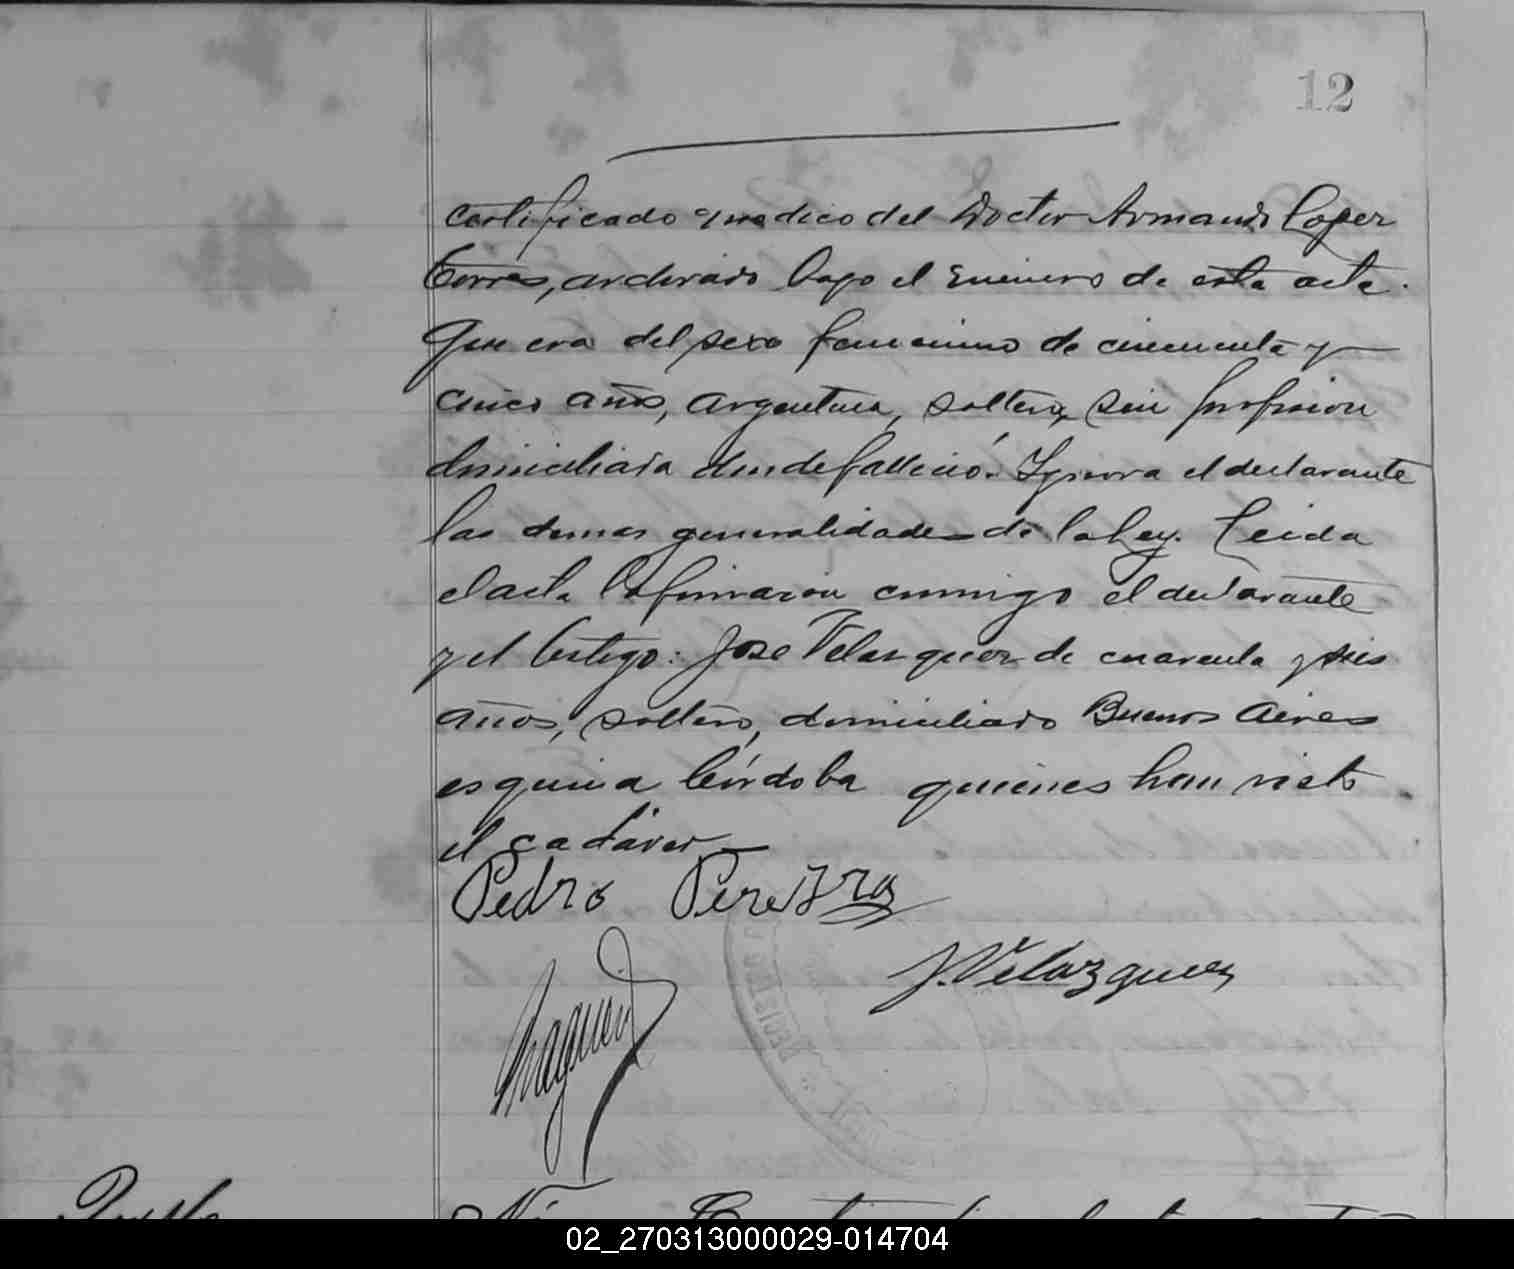 12
certificado medico del Doctor Armando Lopez
Torres, archivado bajo el número de esta acta.
Que era del sexo femenino de cincuenta y
cinco años, argentina, soltera, sin profesion
domiciliada donde falleció. Ignora el declarante
las demas generalidades de la Ley. Leida
el acta la firmaron conmigo el declarante
y el testigo: Jose Velazquez de cuarenta y seis
años, soltero, domiciliado Buenos Aires
esquina Córdoba quienes han visto
el cadáver
Pedro Pereyra
J. Velazquez
REGISTRO
02_270313000029-014704